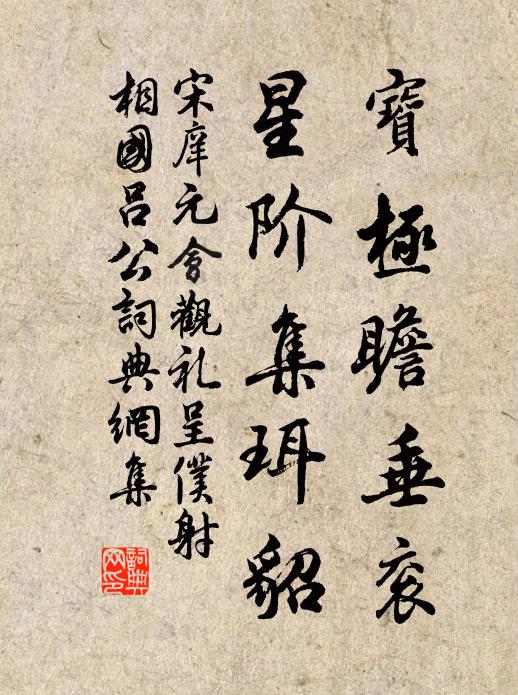 寶極瞻垂衮
星阶集珥貂
宋庠元會觀礼呈僕射
相國吕公詞典網集
詞典网印